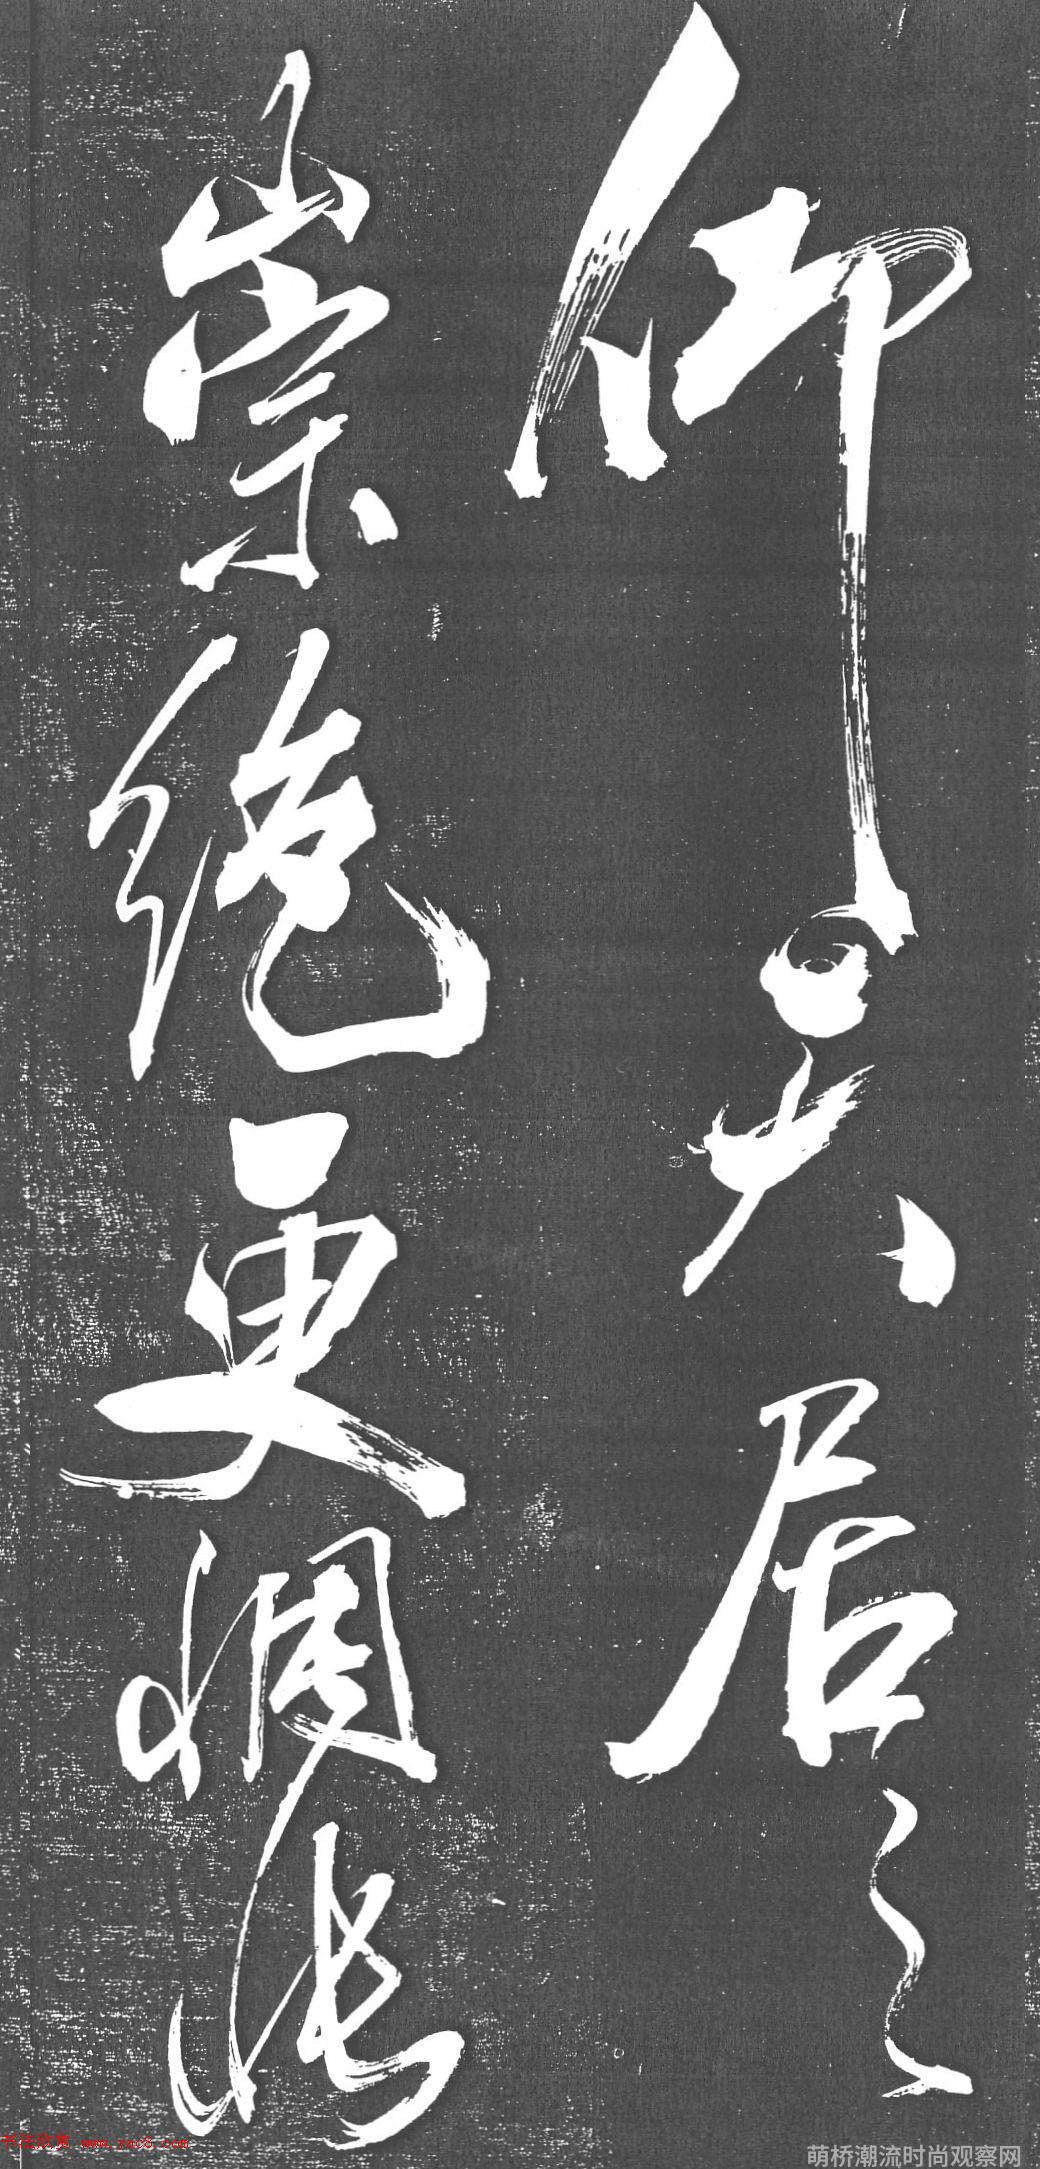 仰天居之
崇絶更惆悵
书法欣赏 www.yac8.com
萌桥潮流时尚观察网